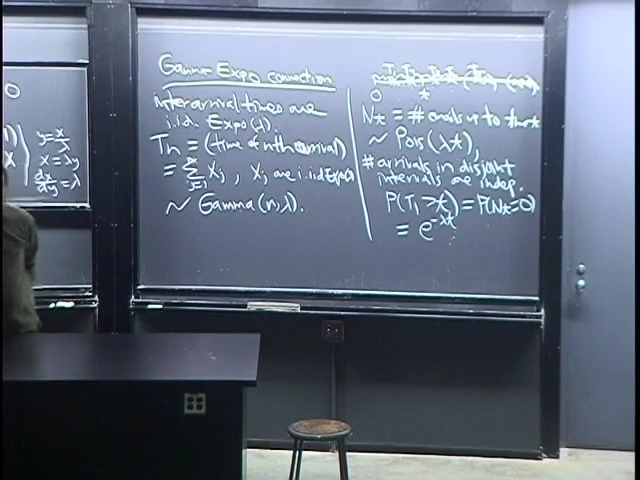 0
y = x/λ
x = λy
dx/dy = λ
Gamma-Expo connection
interarrival times are
i.i.d. Expo(λ)
Tn = (time of nth arrival)
= Σ Xj, Xj are i.i.d Expo(λ)
j=1
~ Gamma(n,λ).
0
Nt = # emails up to time t
~ Pois(λt),
# arrivals in disjoint
intervals are indep.
P(T1>t) = P(Nt=0)
= e^-λt